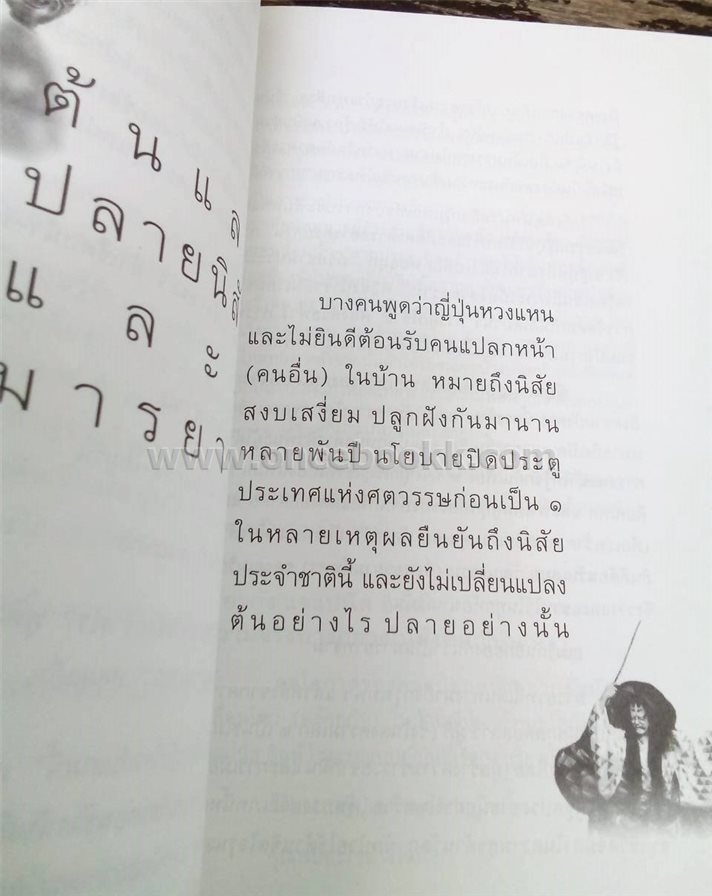 ต้นแล
ปลายนิสั
แ ล ะ
มารยา
บางคนพูดว่าญี่ปุ่นหวงแหน
และไม่ยินดีต้อนรับคนแปลกหน้า
(คนอื่น) ในบ้าน หมายถึงนิสัย
สงบเสงี่ยม ปลูกฝังกันมานาน
หลายพันปี นโยบายปิดประตู
www.oncebookk.com
ประเทศแห่งศตวรรษก่อนเป็น ๑
ในหลายเหตุผลยืนยันถึงนิสัย
ประจำชาตินี้ และยังไม่เปลี่ยนแปลง
ต้นอย่างไร ปลายอย่างนั้น